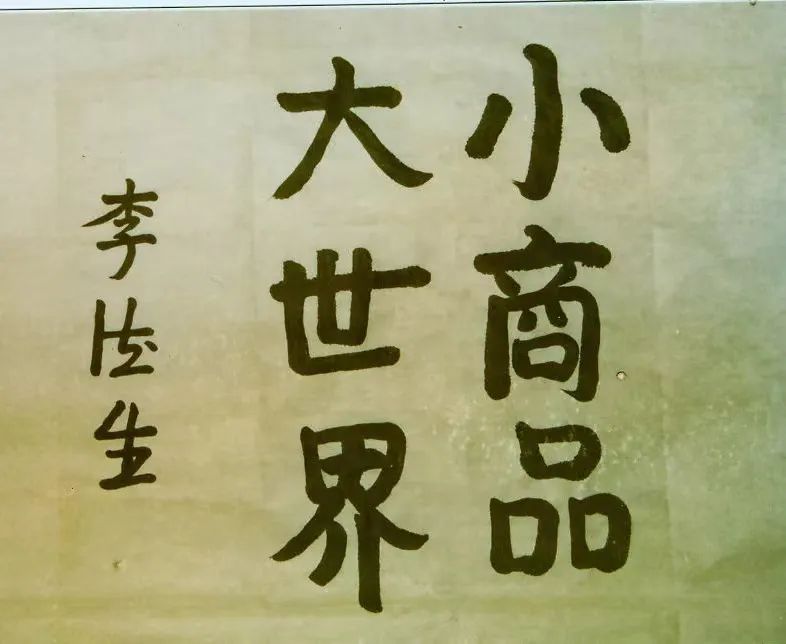 小商品
大世界
李法生